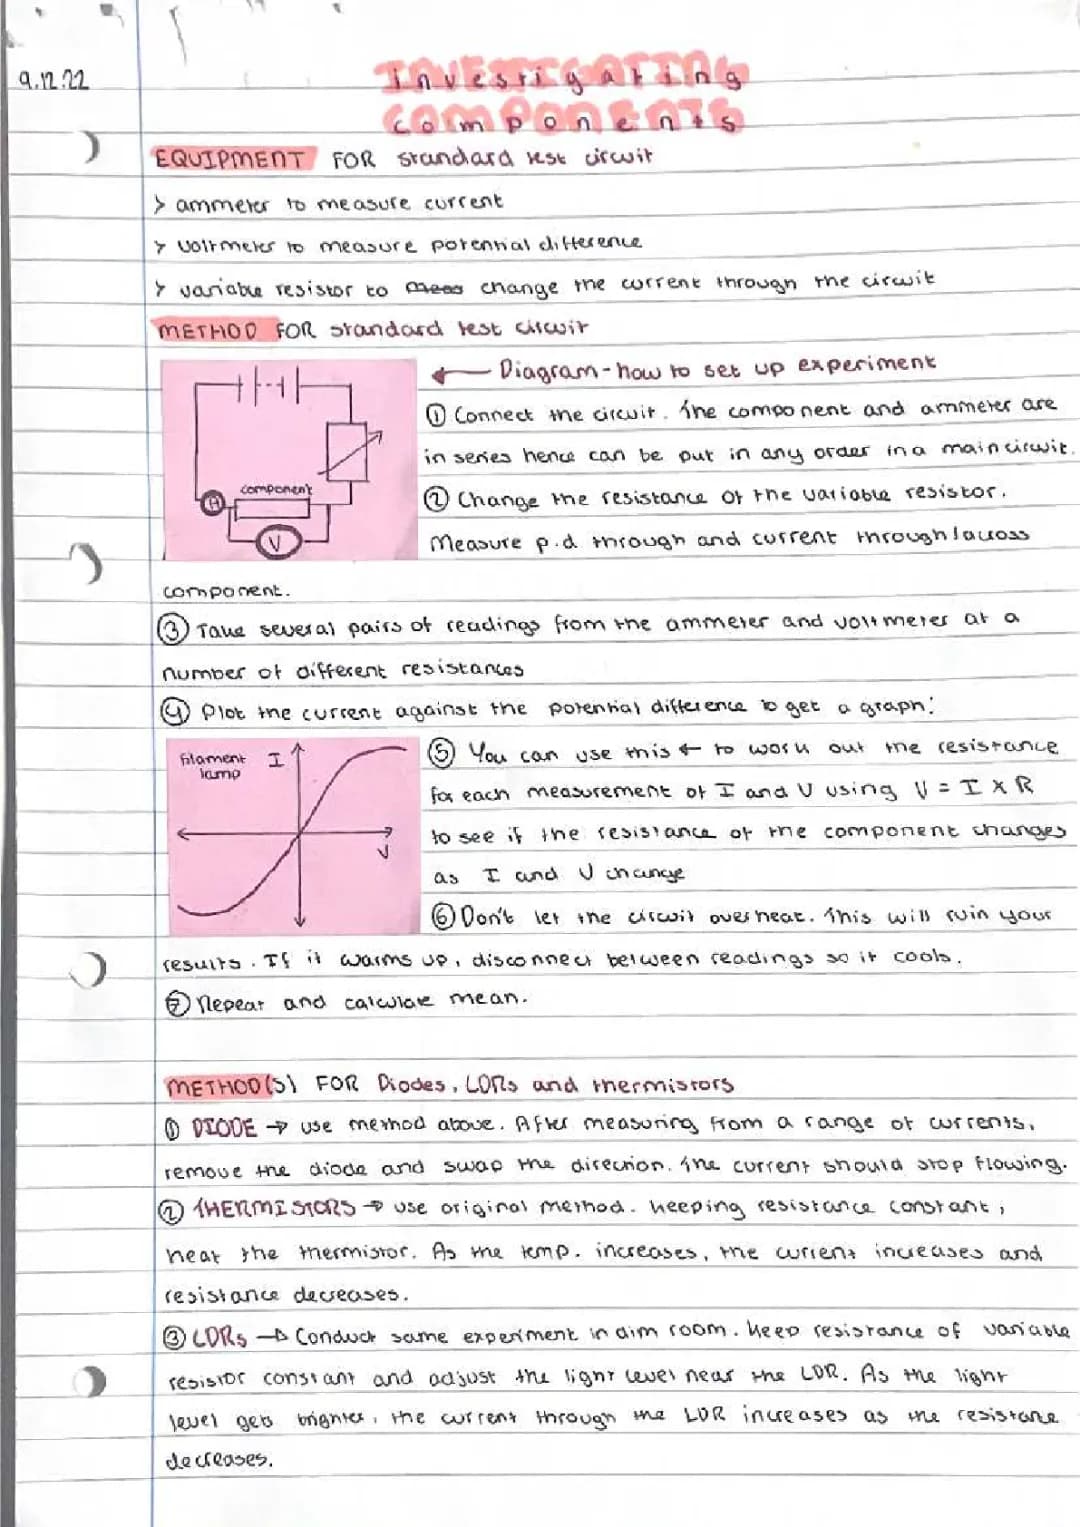 9.12.22
Investigating
components
EQUIPMENT FOR standard test circuit
> ammeter to measure current
> voltmeter to measure potential difference
> variable resistor to meas change the current through the circuit
METHOD FOR standard test circuit
← Diagram - how to set up experiment
① Connect the circuit. The component and ammeter are
in series hence can be put in any order in a main circuit.
component
A
V
② Change the resistance of the variable resistor.
Measure p.d through and current through/across
component.
③ Take several pairs of readings from the ammeter and voltmeter at a
number of different resistances
④ Plot the current against the potential difference to get a graph:
filament
lamp
I
V
⑤ You can use this to work out the resistance
for each measurement of I and V using V = I x R
to see if the resistance of the component changes
as I and V change
⑥ Don't let the circuit overheat. This will ruin your
results. If it warms up, disconnect between readings so it cools.
⑦ Repeat and calculate mean.
METHOD(S) FOR Diodes, LDRs and thermistors
① DIODE → use method above. After measuring from a range of currents,
remove the diode and swap the direction. The current should stop flowing.
② THERMISTORS → use original method. Keeping resistance constant,
heat the thermistor. As the temp. increases, the current increases and
resistance decreases.
③ LDRs → Conduct same experiment in dim room. Keep resistance of variable
resistor constant and adjust the light level near the LDR. As the light
level gets brighter, the current through the LDR increases as the resistane
decreases.